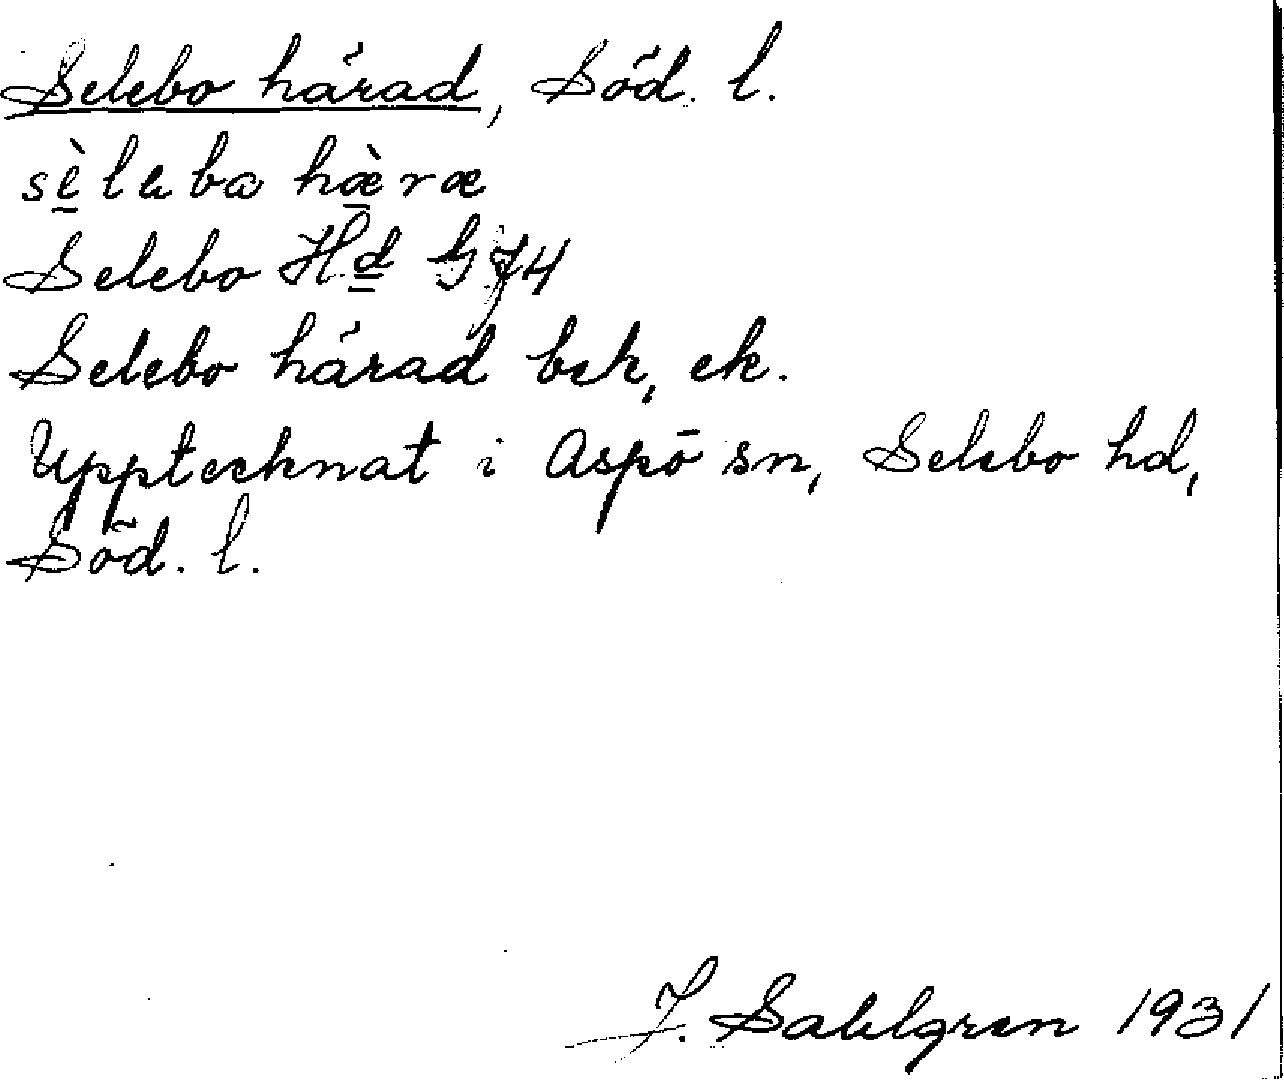 Selebo härad, Söd. l.
sè̱leba hæ̱̀ræ
Selebo Hd G 74
Selebo härad bek, ek.
Upptecknat i Aspö sn, Selebo hd,
Söd. l.
J. Sahlgren 1931